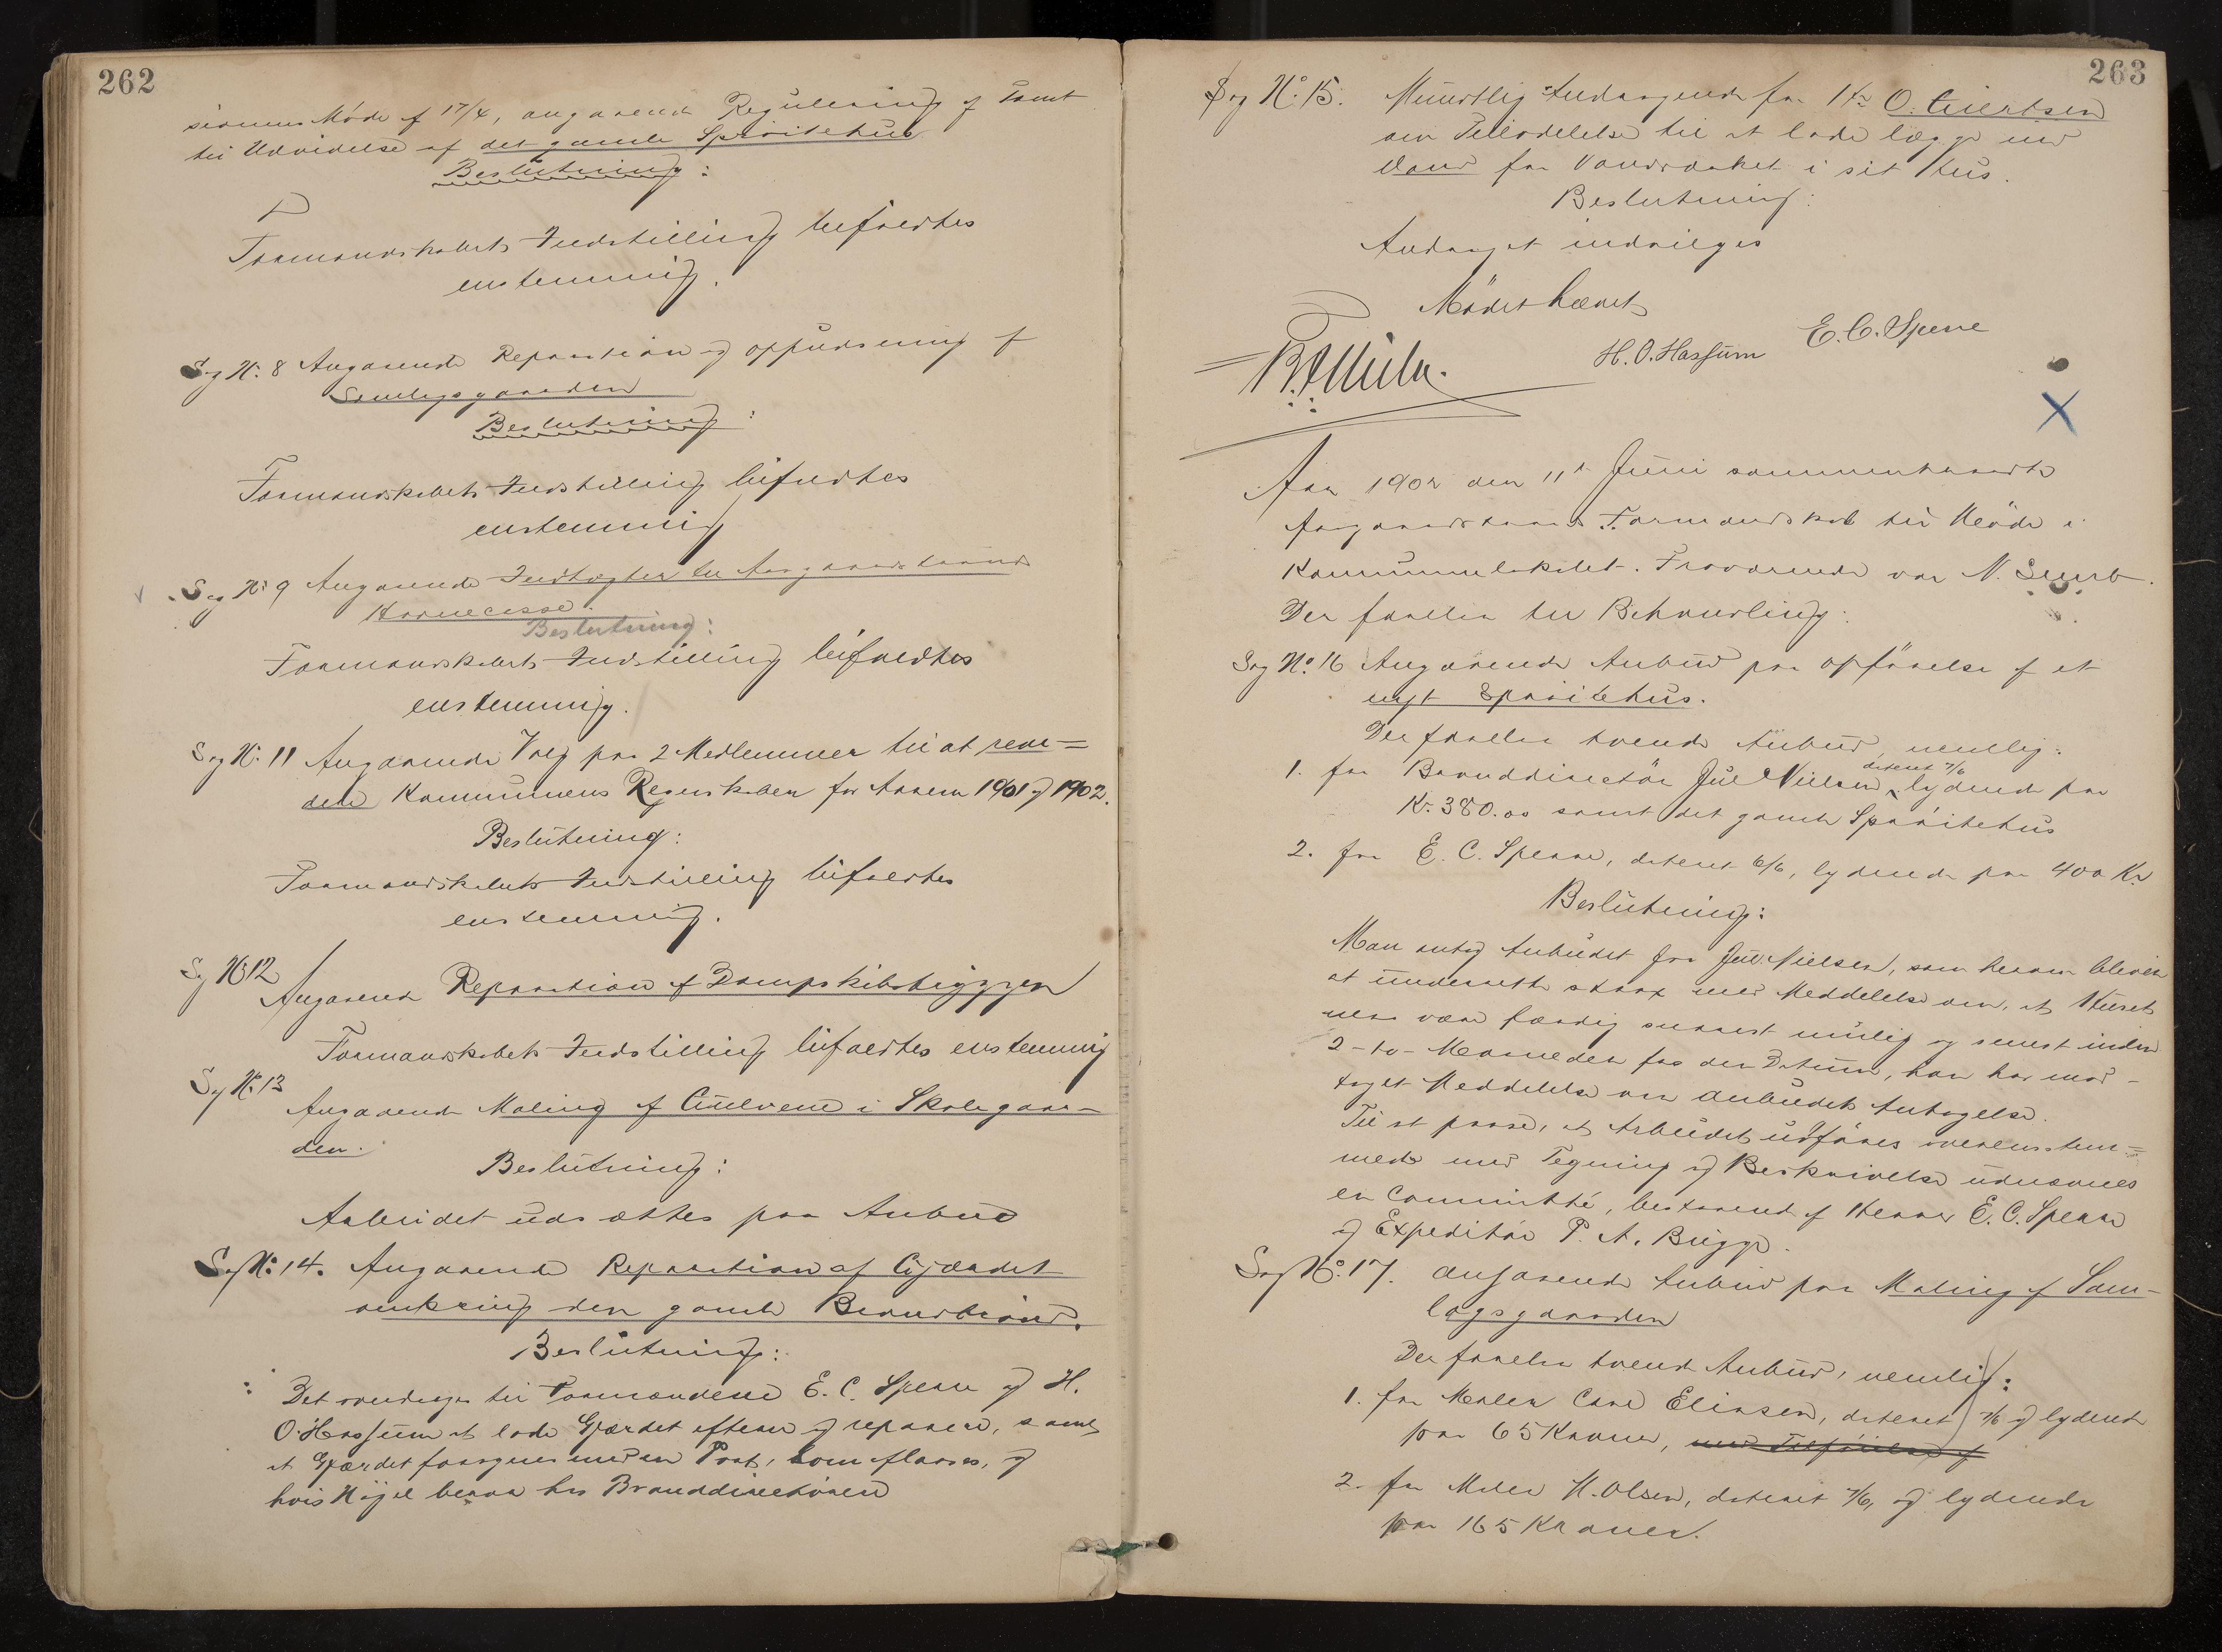 262
sionens Møde af 17/4, angaaende Regulering af Tomt
til Udvidelse af det gamle Sprøitehus
Beslutning:
Formandskabets Indstilling bifaldtes
enstemmig.
Sag No. 8 Angaaende Reparation og oppudsning af
Samlagsgaarden
Beslutning:
Formandskabets Indstilling bifaldtes
enstemmig
Sag No. 9 Angaaende Indtægter til Aasgaardstrands
Havnecasse.
Beslutning:
Formandskabets Indstilling bifaldtes
enstemmig.
Sag No. 11 Angaaende Valg paa 2 Medlemmer til at revi=
dere Kommunens Regnskaber for Aarene 1901 og 1902.
Beslutning:
Formandskabets Indstilling bifaldtes
enstemmig.
Sag No. 12
Angaaende Reparation af Dampskibsbryggen
Formandskabets Indstilling bifaldtes enstemmig
Sag No. 13
Angaaende Maling af Gulvene i Skolegaar-
den.
Beslutning:
Arbeidet udsættes paa Anbud
Sag No. 14. Angaaende Reparation af Gjærdet
omkring den gamle Brandbrønd.
Beslutning:
Det overdrages til Formændene E. C. Sperre og H.
O. Hassum at lade Gjærdet efterse og reparere, samt
at Gjærdet forsynes med en Port, som aflaases, og
hvis Nøgel beror hos Branddirectøren
263
Sag No. 15. Mundtlig Andragende fra Hr O. Giertsen
om Tilladelse til at lade lægge ind
Vand fra Vandværket i sit Hus.
Beslutning:
Andraget indvilges
Mødet hævet
H. O. Hassum E. C. Sperre
Aar 1902 den 11te Juni sammentraadte
Aasgaardstrands Formandskab til Møde i
Kommunelokalet. Fraværende var N.
Der forelaa til Behandling:
Sag No. 16 Angaaende Anbud paa opførelse af et
nyt Sprøitehus.
Der forelaa tvende Anbud, nemlig:
1. fra Branddirectør Jul Nielsen, dateret 7/6 lydende paa
Kr. 380.00 samt det gamle Sprøitehus
2. fra E. C. Sperre, dateret 6/6, lydende paa 400 Kr.
Beslutning:
Man antog Anbudet fra Jul. Nielsen, som herom bliver
at underrette strax med Meddelelse om, at Huset
maa være færdig snarest mulig og senest inden
2-to- Maaneder fra den Datum, han har mod-
taget Meddelelse om Anbudets Antagelse.
Til at paase, at Arbeidet udføres overensstem=
mende med Tegning og Beskrivelse udnævnes
en Committé, bestaaende af Herrer E. C. Sperre
og Expeditør P. A. Bugge.
Sag No. 17. Angaaende Anbud paa Maling af Sam-
lagsgaarden
Der forelaa tvende Anbud, nemlig:
1. fra Maler Carl Eliasen, dateret 7/6 og lydende
paa 65 Kroner, med Tilføielse af
2. fra Maler H. Olsen, dateret 7/6, og lydende
paa 165 Kroner.